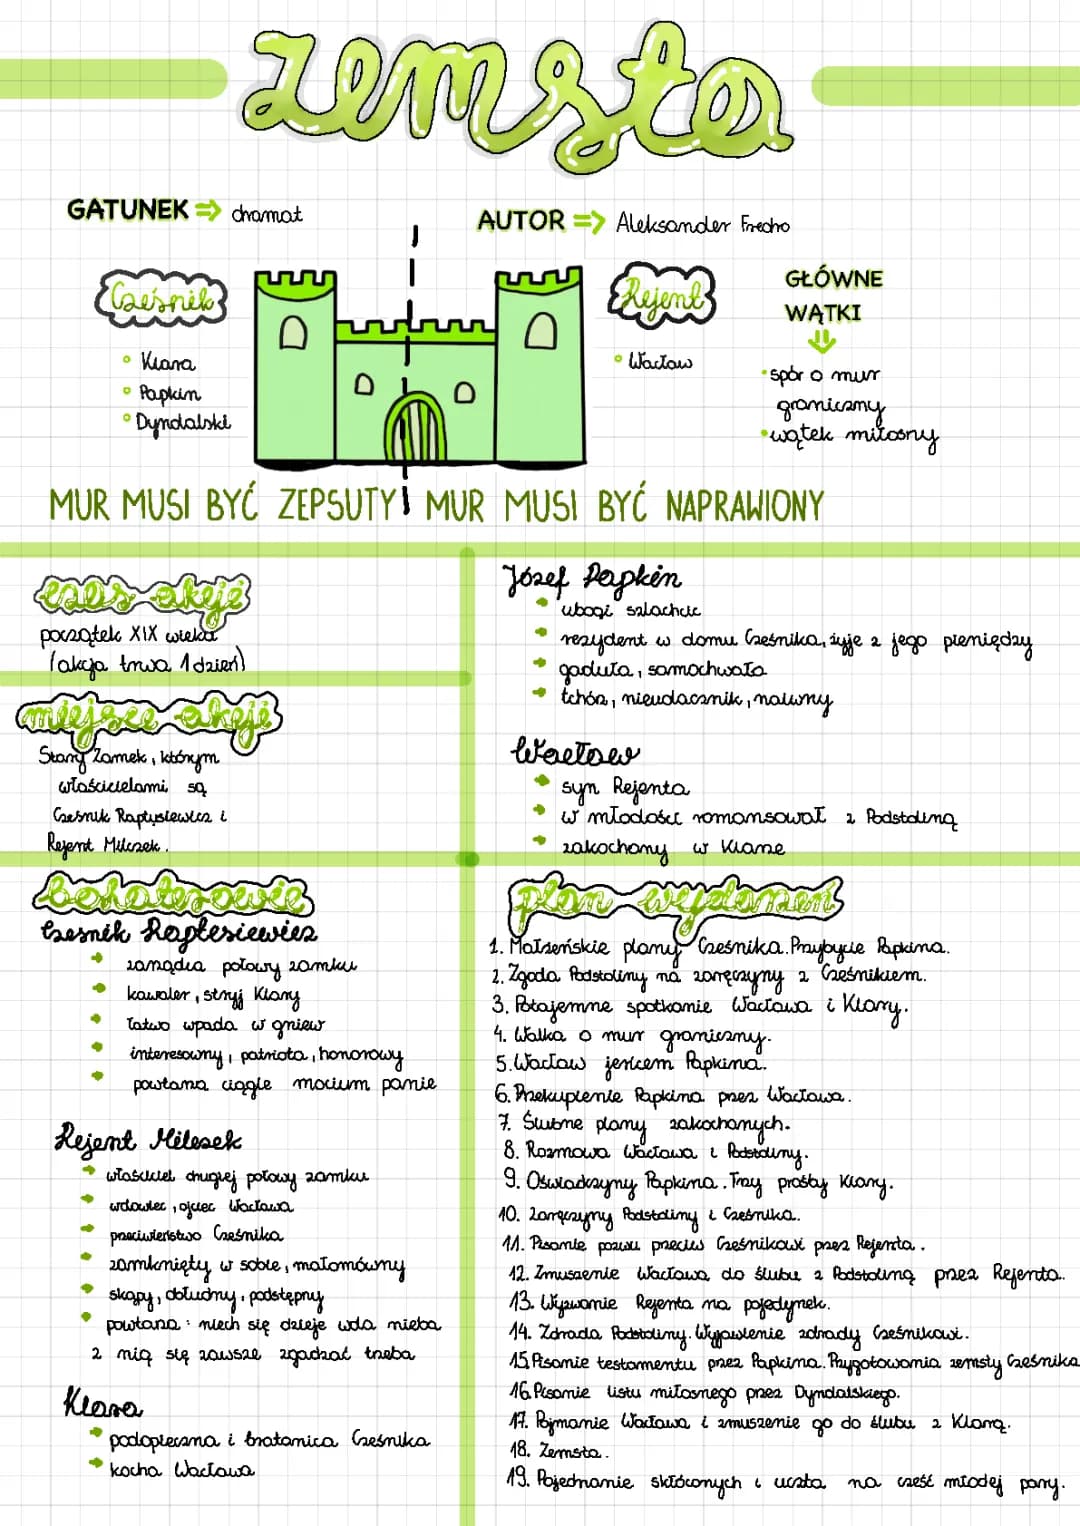 Zemsta
GATUNEK ⇒ dramat
AUTOR ⇒ Aleksander Fredro
Cześnik
• Klara
• Papkin
• Dyndalski
Rejent
• Wacław
GŁÓWNE
WĄTKI
• spór o mur
graniczny
• wątek miłosny
MUR MUSI BYĆ ZEPSUTY MUR MUSI BYĆ NAPRAWIONY
czas akcji
początek XIX wieku
(akcja trwa 1 dzień)
miejsce akcji
Stary Zamek, którym
właścicielami są
Cześnik Raptusiewicz i
Rejent Milczek.
bohaterowie
Cześnik Raptesiewicz
zarządza połową zamku
kawaler, stryj Klary
łatwo wpada w gniew
interesowny, patriota, honorowy
powtarza ciągle mocium panie
Rejent Milczek
właściciel drugiej połowy zamku
wdowiec, ojciec Wacława
przeciwieństwo Cześnika
zamknięty w sobie, małomówny
skąpy, obłudny, podstępny
powtarza: niech się dzieje wola nieba
z nią się zawsze zgadzać trzeba
Klara
podopieczna i bratanica Cześnika
kocha Wacława
Józef Papkin
ubogi szlachcic
rezydent w domu Cześnika, żyje z jego pieniędzy
gaduła, samochwała
tchórz, nieudacznik, naiwny
Wacław
syn Rejenta
w młodości romansował z Podstoliną
zakochany w Klarze
plan wydarzeń
1. Małżeńskie plany Cześnika. Przybycie Papkina.
2. Zgoda Podstoliny na zaręczyny z Cześnikiem.
3. Potajemne spotkanie Wacława i Klary.
4. Walka o mur graniczny.
5. Wacław jeńcem Papkina.
6. Przekupienie Papkina przez Wacława.
7. Ślubne plany zakochanych.
8. Rozmowa Wacława i Podstoliny.
9. Oświadczyny Papkina. Trzy prośby Klary.
10. Zaręczyny Podstoliny i Cześnika.
11. Pisanie pozwu przeciw Cześnikowi przez Rejenta.
12. Zmuszenie Wacława do ślubu z Podstoliną przez Rejenta.
13. Wyzwanie Rejenta na pojedynek.
14. Zdrada Podstoliny. Wyjawienie zdrady Cześnikowi.
15. Pisanie testamentu przez Papkina. Przygotowania zemsty Cześnika
16. Pisanie listu miłosnego przez Dyndalskiego.
17. Pojmanie Wacława i zmuszenie go do ślubu z Klarą.
18. Zemsta.
19. Pojednanie skłóconych i uczta na cześć młodej pary.